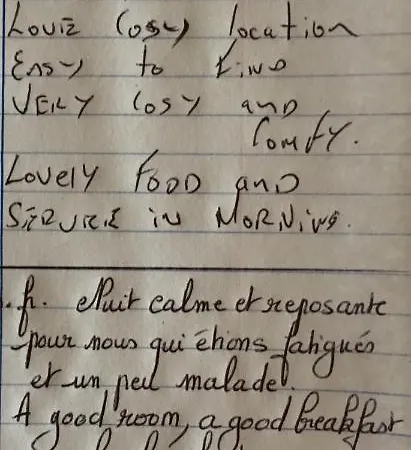 Lovie Cosy location
Easy to Find
VERY Cosy and
Comfy.
Lovely FOOD and
in MORNiNg.
.fr. Nuit calme et reposante
pour nous qui étions fatigués
et un peu malade.
A good room, a good breakfast